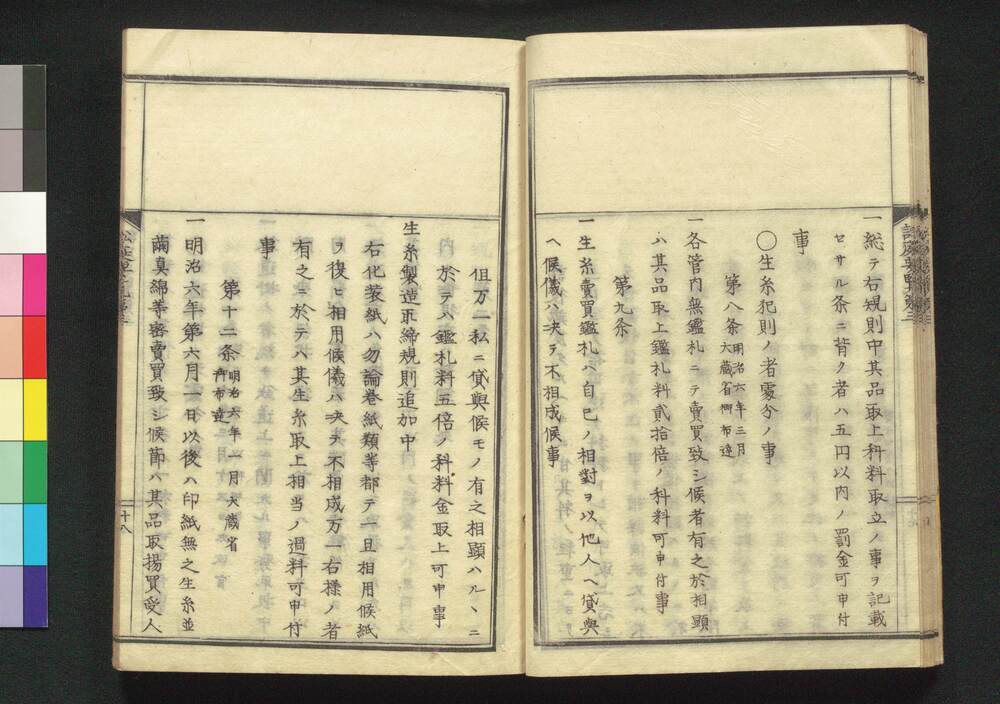 一総テ右規則中其品取上科料取立ノ事ヲ記載
セサル条ニ背ク者ハ五円以内ノ罰金可申付
事
〇生糸犯則ノ者處分ノ事
第八条 明治六年三月
大蔵省 布達
一各管内無鑑札ニテ賣買致シ候者有之於相顕
ハ其品取上鑑札料貳拾倍ノ科料可申付事
第九条
一生糸賣買鑑札ハ自己ノ相對ヲ以他人ヘ貸與
ヘ候儀ハ決テ不相成候事
但万一私ニ貸與候モノ有之相顕ハルヽニ
於テハ鑑札料五倍ノ科料金取上可申事
生糸製造取締規則追加中
第十二条 明治六年一月大蔵省
布達
石化装紙ハ勿論巻紙類等都テ一旦相用候紙
ヲ復ヒ相用候儀ハ決テ不相成万一右様ノ者
有之ニ於テハ其生糸取上相当ノ過料可申付
事
一明治六年第六月一日以後ハ印紙無之生糸並
繭真綿等密賣買致シ候節ハ其品取揚買受人
十八